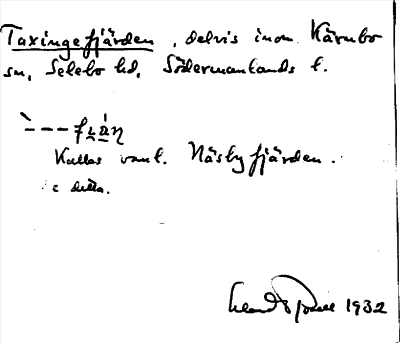 Taxingefjärden, delvis inom Kärnbo
sn, Selebo hd, Södermanlands l.
`---fɩ̯á̱ŋ
Kallas vanl. Näsbyfjärden.
: detta.
1932